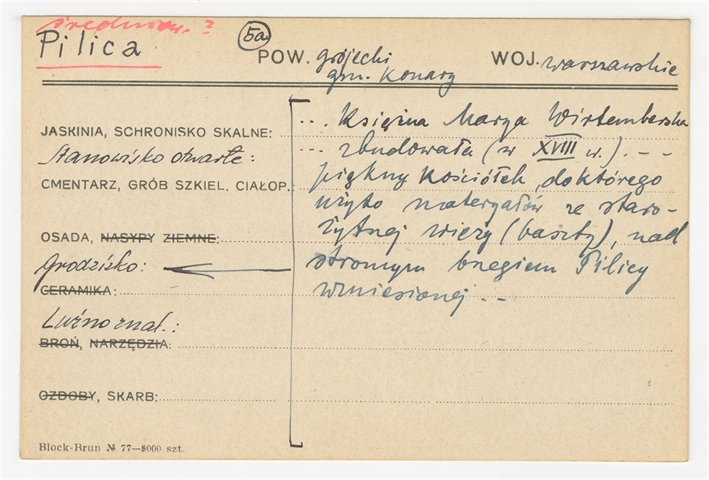 średniow. ?
Pilica
5a
POW. grójecki
gm. Konary
WOJ. warszawskie
JASKINIA, SCHRONISKO SKALNE:
Stanowisko otwarte:
CMENTARZ, GRÓB SZKIEL, CIAŁOP.
OSADA, NASYPY ZIEMNE:
Grodzisko:
CERAMIKA:
Luźno znal.:
BROŃ, NARZĘDZIA:
OZDOBY, SKARB:
... Księżna Marya Wirtemberska
--- zbudowała (w XVIII w.). --
piękny kościółek, do którego
użyto materyałów ze staro-
żytnej wieży (baszty), nad
stromym brzegiem Pilicy
wzniesionej --
Block-Brun № 77—8000 szt.